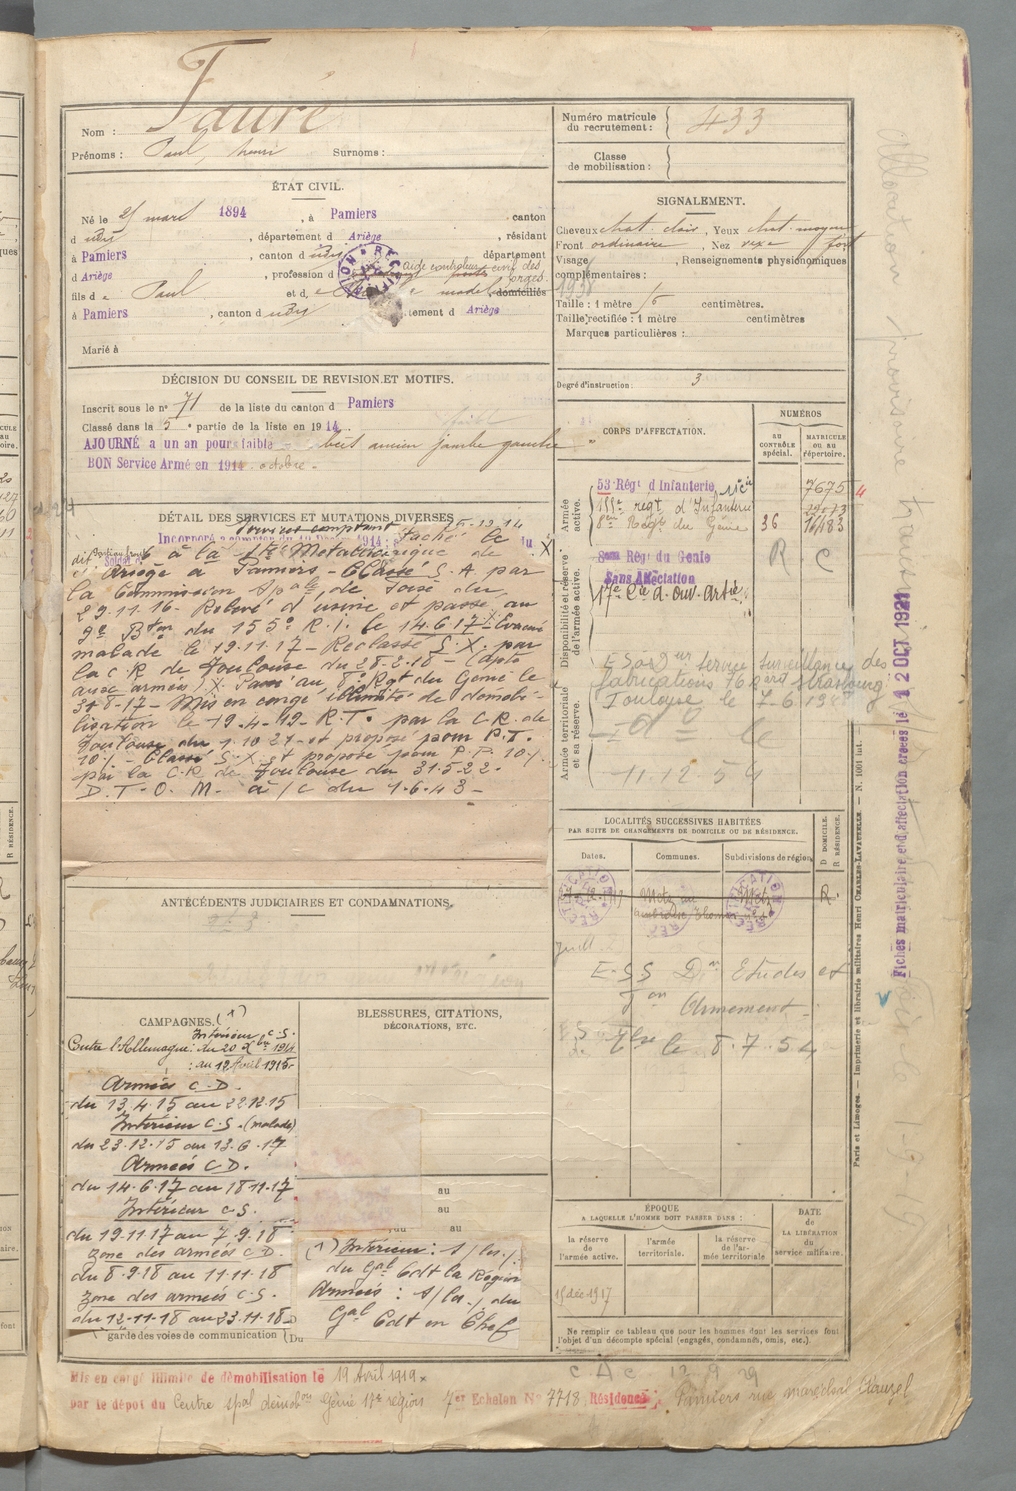 Fauré
Nom :
Prénoms : Paul, henri Surnoms :
Numéro matricule
du recrutement : 433
Classe
de mobilisation :
ÉTAT CIVIL.
Né le mars 1894, à Pamiers, canton
d udit, département d Ariège, résidant
à Pamiers, canton d udit, département
d Ariège, profession d aide controleur civil des
forges
fils de Paul et d domiciliés
à Pamiers, canton d udit tement d Ariège
Marié à
SIGNALEMENT.
Cheveux chat. clair, Yeux chat. moyen
Front ordinaire, Nez fort
Visage, Renseignements physionomiques
complémentaires :
1938
Taille : 1 mètre centimètres.
Taille rectifiée : 1 mètre centimètres
Marques particulières :
Degré d'instruction : 3
DÉCISION DU CONSEIL DE REVISION ET MOTIFS.
Inscrit sous le n° 71 de la liste du canton d Pamiers
Classé dans la 5e partie de la liste en 1914.
AJOURNÉ a un an pour faible jambe gauche
BON Service Armé en 1914 octobre.
DÉTAIL DES SERVICES ET MUTATIONS DIVERSES
Services comptant 15-12-14
Incorporé a compter du taché le
dit à la Sté Métallurgique de
l'Ariège à Pamiers - Classé S.A par
la Commission Spale de Foix du
29.11.16 - Relevé d'usine et passé au
9e Bton du 155e R.I. le 14.6.17 - Evacué
malade le 19.11.17 - Reclassé S.X. par
la C R de Toulouse du 28.2.18 - (apte
aux armées) X. Passé au 8e Rgt du Génie le
31-8-17 - Mis en congé illimité de démobi-
lisation le 19.4.19. R.T. par la C.R. de
Toulouse du 1.10.21 et proposé pour P.T.
10% - Classé S.X. et proposé pour P.P. 10%
par la C.R de Toulouse du 31.5.22.
D.T.O.M. à /c du 1.6.43 -
CORPS D'AFFECTATION.
NUMÉROS
AU CONTRÔLE spécial.
MATRICULE ou au répertoire.
Armée active.
53 Régt d'Infanterie 7675
155e régt d'Infanterie
8e Régt du Génie 36 1483
Disponibilité et réserve de l'armée active.
8e Rég du Génie R C
Sans Affectation
17e Cie d. ouv. Artie
Armée territoriale et sa réserve.
Service surveillance des
fabrications Strasbourg
Toulouse le 7-6
d° le
11.12.54
LOCALITÉS SUCCESSIVES HABITÉES
PAR SUITE DE CHANGEMENTS DE DOMICILE OU DE RÉSIDENCE.
Dates. Communes. Subdivisions de région. D DOMICILE. R RÉSIDENCE.
Metz Metz R
E.S.S Don Etudes et
Ton Armement
Tlse le 8.7.54
ANTÉCÉDENTS JUDICIAIRES ET CONDAMNATIONS.
CAMPAGNES. (1)
Intérieur C.S.
Contre l'Allemagne : du 20 Xbre 1914
: au 12 Avril 1915
Armées C.D.
du 13.4.15 au 22.12.15
Intérieur C.S. (malade)
du 23.12.15 au 13.6.17
Armées C D.
du 14.6.17 au 18.11.17
Intérieur C.S.
du 19.11.17 au 7.9.18
Zone des armées C D.
du 8.9.18 au 11.11.18
Zone des armées C.S.
du 12-11-18 au 23.11.18
garde des voies de communication
BLESSURES, CITATIONS,
DÉCORATIONS, ETC.
au
au
au
(1) Intérieur :
du Gal Cdt la Région
Armées : du
Gal Cdt en Chef
ÉPOQUE
A LAQUELLE L'HOMME DOIT PASSER DANS :
la réserve de l'armée active. l'armée territoriale. la réserve de l'armée territoriale
DATE DE LA LIBÉRATION du service militaire.
15 déc 1917
Ne remplir ce tableau que pour les hommes dont les services font
l'objet d'un décompte spécial (engagés, condamnés, omis, etc.).
c. A c 12 9 29
Mis en congé illimité de démobilisation le 19 Avril 1919
par le dépôt du Centre spal démob Génie 17e région 7er Echelon N° 7718 Résidence Pamiers rue maréchal Clauzel
Paris et Limoges. — Imprimerie et librairie militaires Henri CHARLES-LAVAUZELLE. — N. 1001 int.
Fiches matriculaire et d'affectation créées le 12 OCT 1921
allocation provisoire